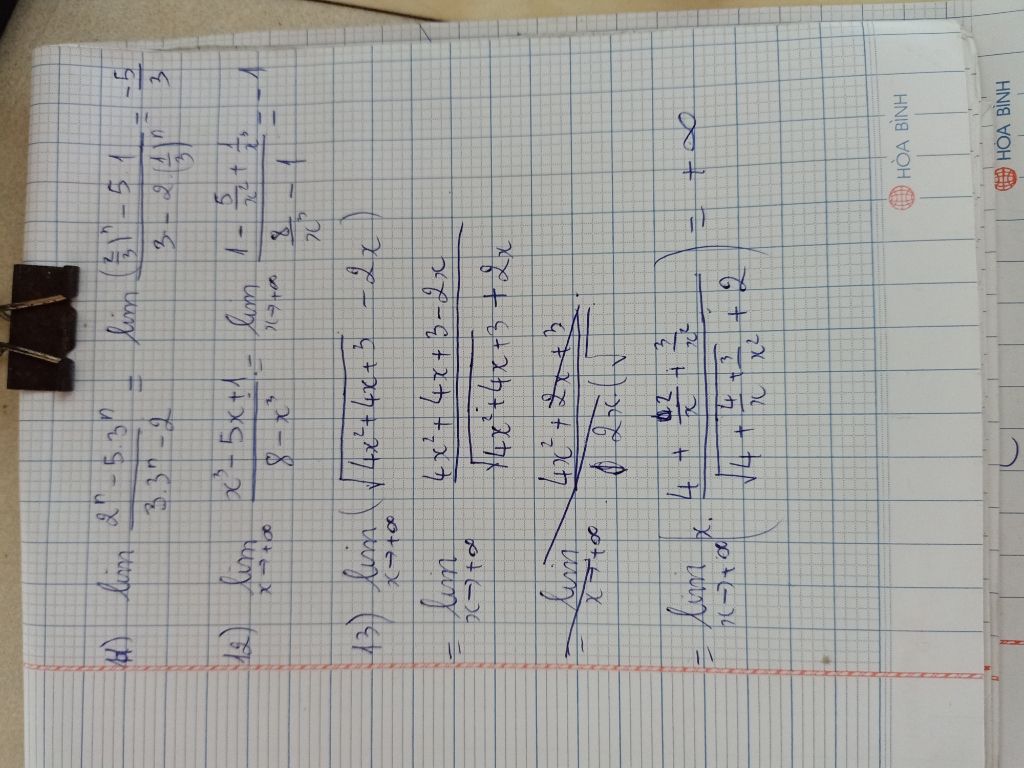 11) lim (2ⁿ - 5.3ⁿ)/(3.3ⁿ - 2) = lim ((2/3)ⁿ - 5)/(3 - 2.(1/3)ⁿ) = -5/3
12) lim x→+∞ (x³ - 5x + 1)/(8 - x³) = lim x→+∞ (1 - 5/x² + 1/x³)/(8/x³ - 1) = -1
13) lim x→+∞ (√(4x² + 4x + 3) - 2x)
= lim x→+∞ (4x² + 4x + 3 - 2x)/(√(4x² + 4x + 3) + 2x)
= lim x→+∞ (4x² + 2x + 3)/(2x(√
= lim x→+∞ x.((4 + 2/x + 3/x²)/(√(4 + 4/x + 3/x²) + 2)) = +∞
HÒA BÌNH
HÒA BÌNH